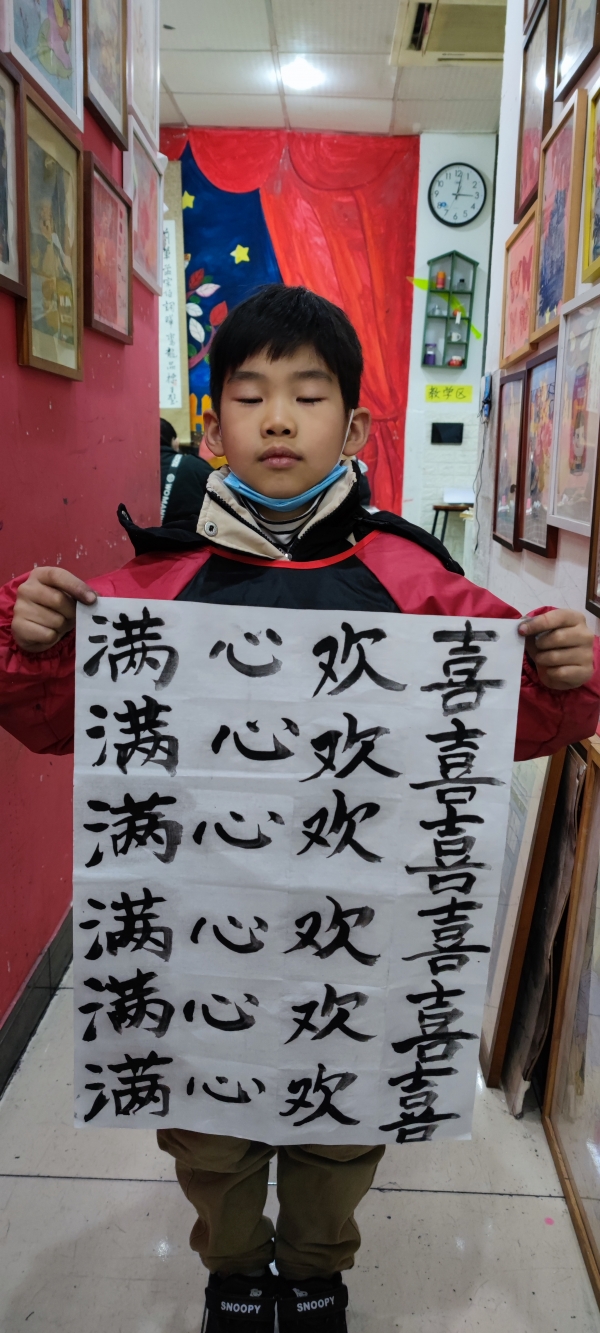 教学区
满心欢喜
满心欢喜
满心欢喜
满心欢喜
满心欢喜
满心欢喜
SNOOPY
SNOOPY